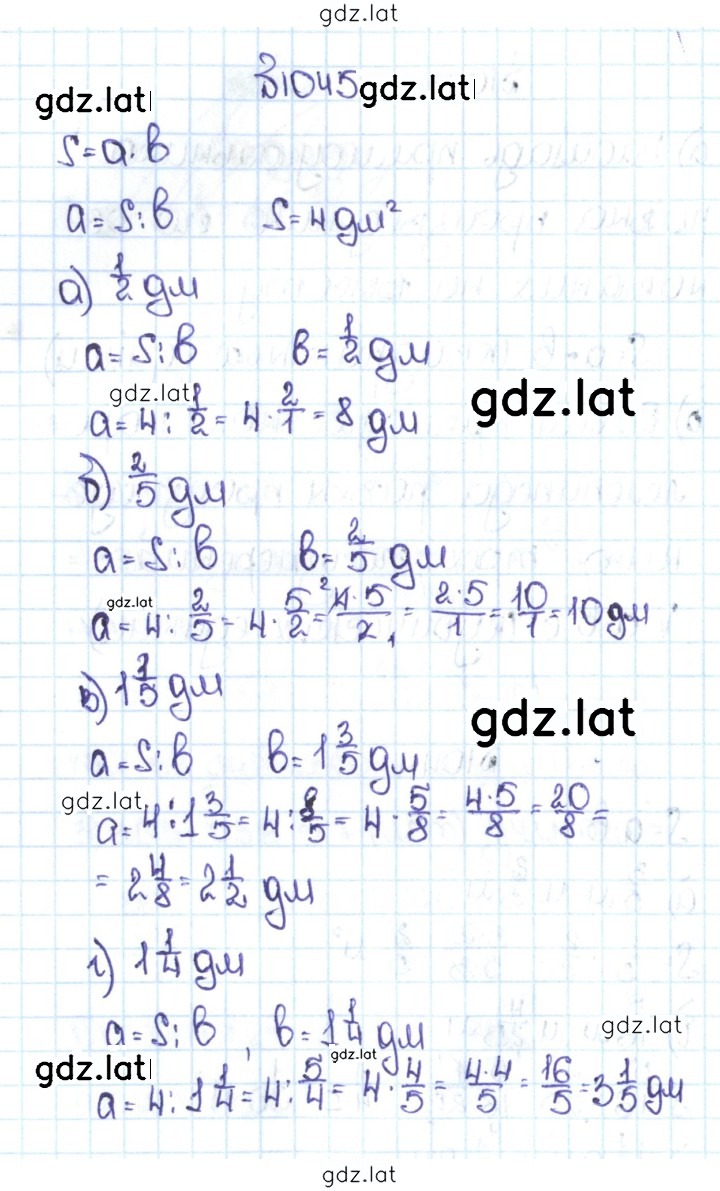 gdz.lat
В1045 gdz.lat
gdz.lat
S=a·b
a=S:b S=4дм²
а) 1/2 дм
a=S:b b=1/2 дм
gdz.lat
a=4:1/2=4·2/1=8 дм gdz.lat
б) 2/5 дм
a=S:b b=2/5 дм
gdz.lat
a=4:2/5=4·5/2=4·5/2=2·5/1=10/1=10дм
в) 1 3/5 дм
gdz.lat
a=S:b b=1 3/5 дм
gdz.lat
a=4:1 3/5=4:8/5=4·5/8=4·5/8=20/8=
=2 4/8=2 1/2 дм
г) 1 1/4 дм
a=S:b, b=1 1/4 дм gdz.lat
gdz.lat gdz.lat
a=4:1 1/4=4:5/4=4·4/5=4·4/5=16/5=3 1/5 дм
gdz.lat